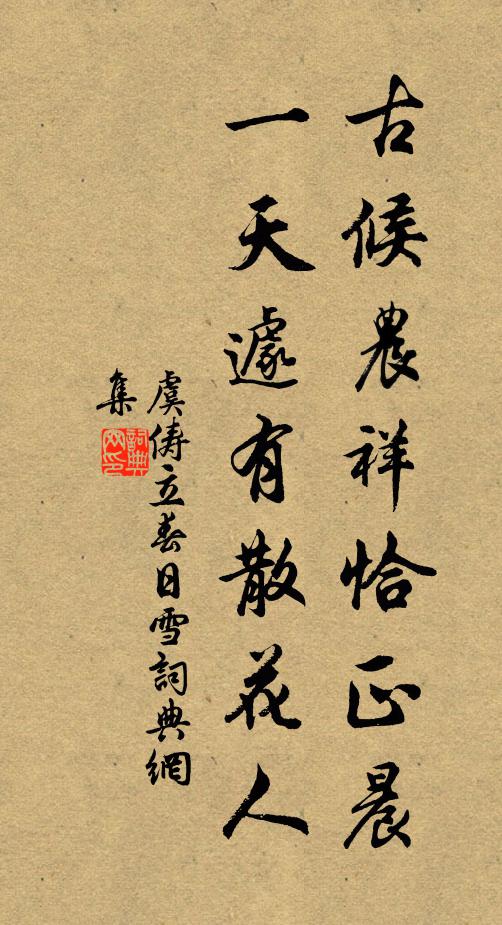 古候農祥恰正晨
一天遽有散花人
虞儔立春日雪詞典網
集
詞典網印